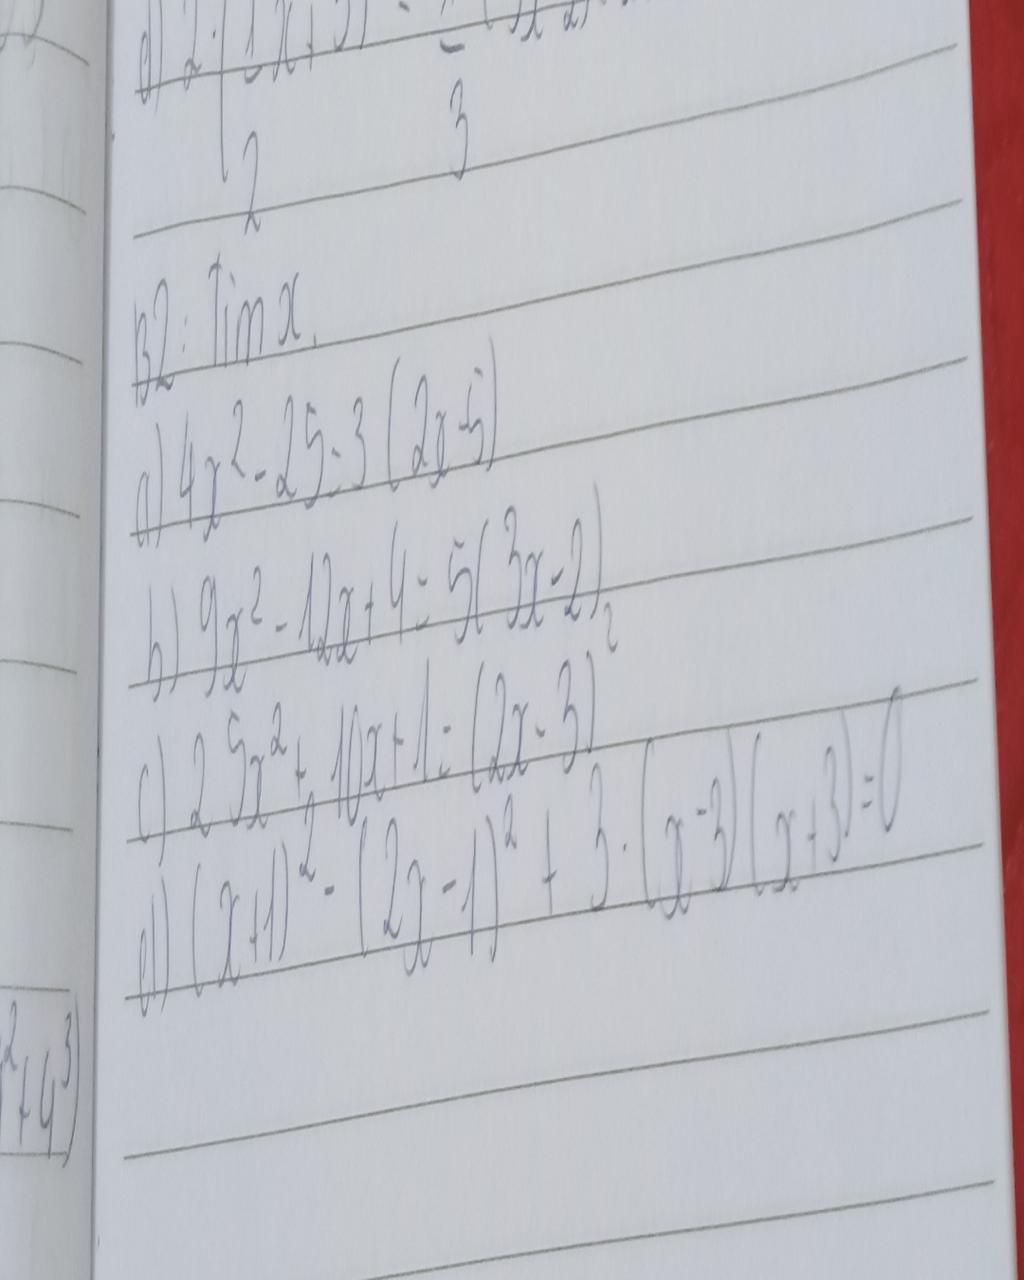 d) 2·(1x+3)
2 3
B2: Tìm x.
a) 4x² - 25 = 3(2x-5)
b) 9x² - 12x + 4 = 5(3x-2)
c) 25x² + 10x + 1 = (2x-3)²
d) (x+1)² - (2x-1)² + 3·(x-3)(x+3)=0
²+4³)